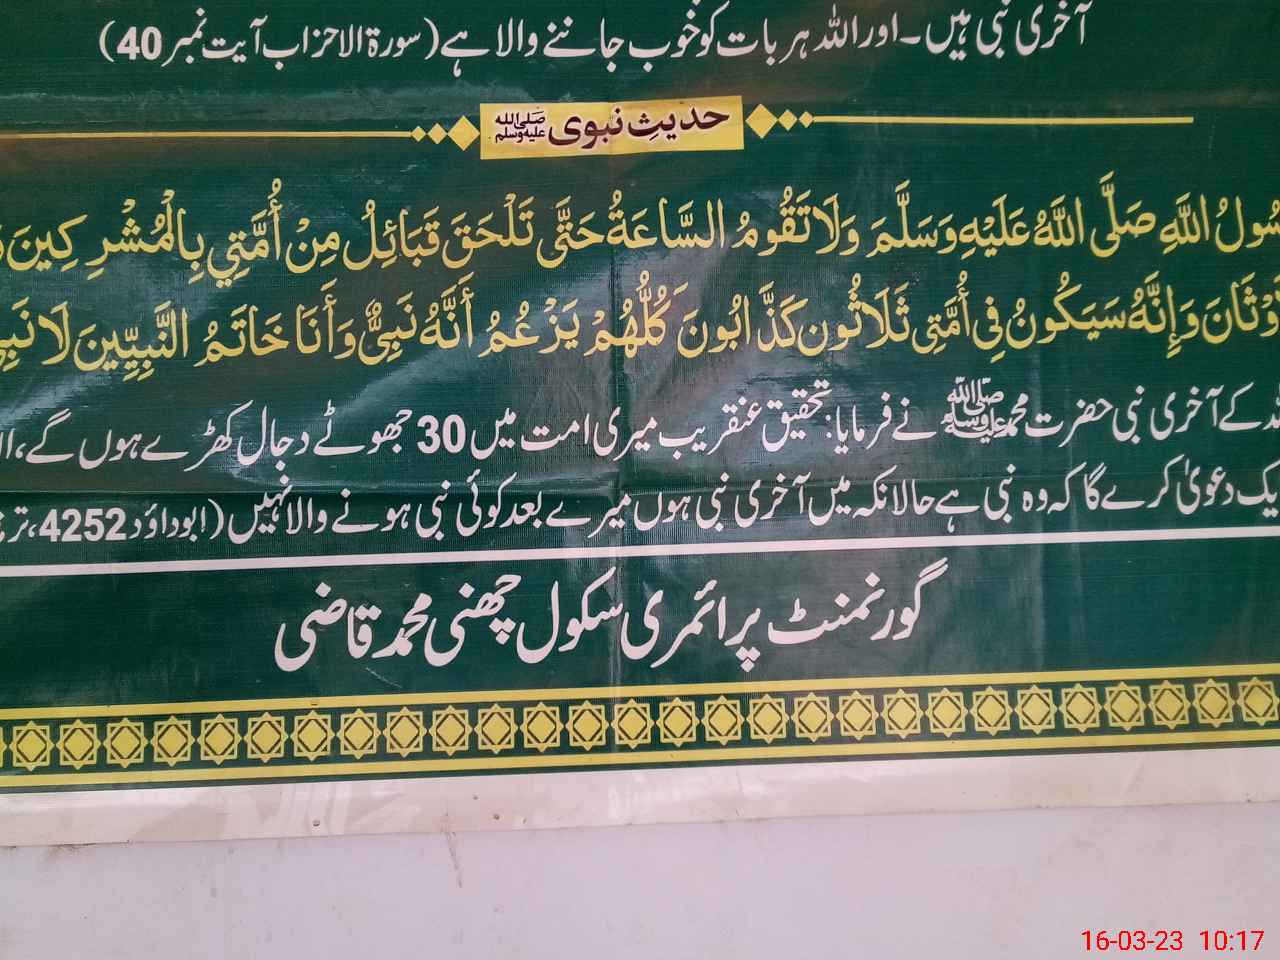 آخری نبی ہیں۔ اور اللہ ہر بات کو خوب جاننے والا ہے (سورۃ الاحزاب آیت نمبر 40)
حدیثِ نبوی صلی اللہ علیہ وسلم
اللَّهِ صَلَّى اللَّهُ عَلَيْهِ وَسَلَّمَ وَلَا تَقُومُ السَّاعَةُ حَتَّى تَلْحَقَ قَبَائِلُ مِنْ أُمَّتِي بِالْمُشْرِكِينَ
وَإِنَّهُ سَيَكُونُ فِي أُمَّتِي ثَلَاثُونَ كَذَّابُونَ كُلُّهُمْ يَزْعُمُ أَنَّهُ نَبِيٌّ وَأَنَا خَاتَمُ النَّبِيِّينَ لَا
کے آخری نبی حضرت محمد ﷺ نے فرمایا: تحقیق عنقریب میری امت میں 30 جھوٹے دجال کھڑے ہوں گے،
دعویٰ کرے گا کہ وہ نبی ہے حالانکہ میں آخری نبی ہوں میرے بعد کوئی نبی ہونے والا نہیں (ابوداؤد 4252،
گورنمنٹ پرائمری سکول چھنی محمد قاضی
16-03-23 10:17